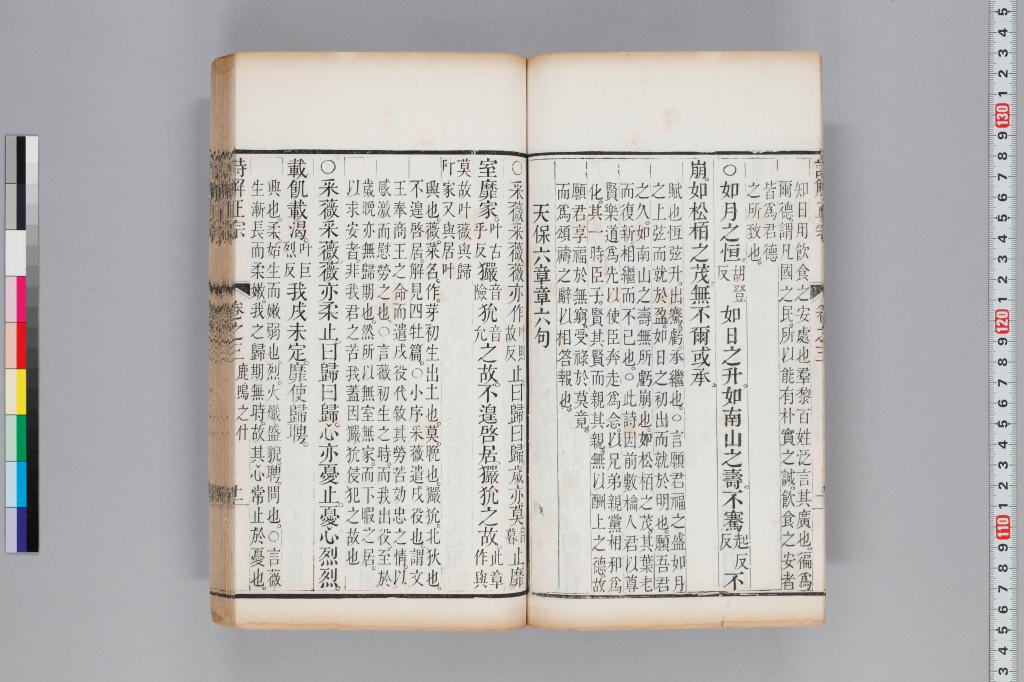 知日用飲食之安處也羣黎百姓泛言其廣也徧為
爾德謂凡國之民所以能有朴實之誠飲食之安者
皆為君德
之所致也
○如月之恒胡登反如日之升如南山之壽不騫起反不
崩如松栢之茂無不爾或承
賦也恆弦升出騫虧承繼也○言願君福之盛如月
之上弦而就於盈如日之初出而就於明也願吾君
之久如南山之壽無所虧崩也如松栢之茂其葉老
而復新相繼而不已也○此詩因前數棆人君以尊
賢樂道為先以使臣奔走為念以兄弟親黨相和為
化其一時臣子賢其賢而親其親無以酬上之德故
願君享福於無窮受祿於莫竟
而為頌禱之辭以相答報也
天保六章章六句
○采薇采薇薇亦作止曰歸曰歸歲亦莫暮止靡
室靡家叶古乎反玁音險狁音允之故不遑啓居玁狁之故此章作與
莫故叶薇與歸
叶家又與居叶
興也薇菜名作芽初生出土也莫晚也玁狁北狄也
不遑啓居解見四牡篇○小序采薇遣戍役也謂文
王奉商王之命而遣戍役代敘其勞苦効忠之情以
感激而慰勞之也○言薇初生之時而我出役至於
歲晚亦無歸期也然所以無室無家而下暇之居
以求安者非我君之苦我蓋因玁狁侵犯之故也
○采薇采薇薇亦柔止曰歸曰歸心亦憂止憂心烈烈
載飢載渴叶巨烈反我戍未定靡使歸聘
興也柔始生而嫩弱也烈火熾盛貌聘問也○言薇
生漸長而柔嫩我之歸期無時故其心常止於憂也
詩解正宗 卷之三 鹿鳴之什 十一